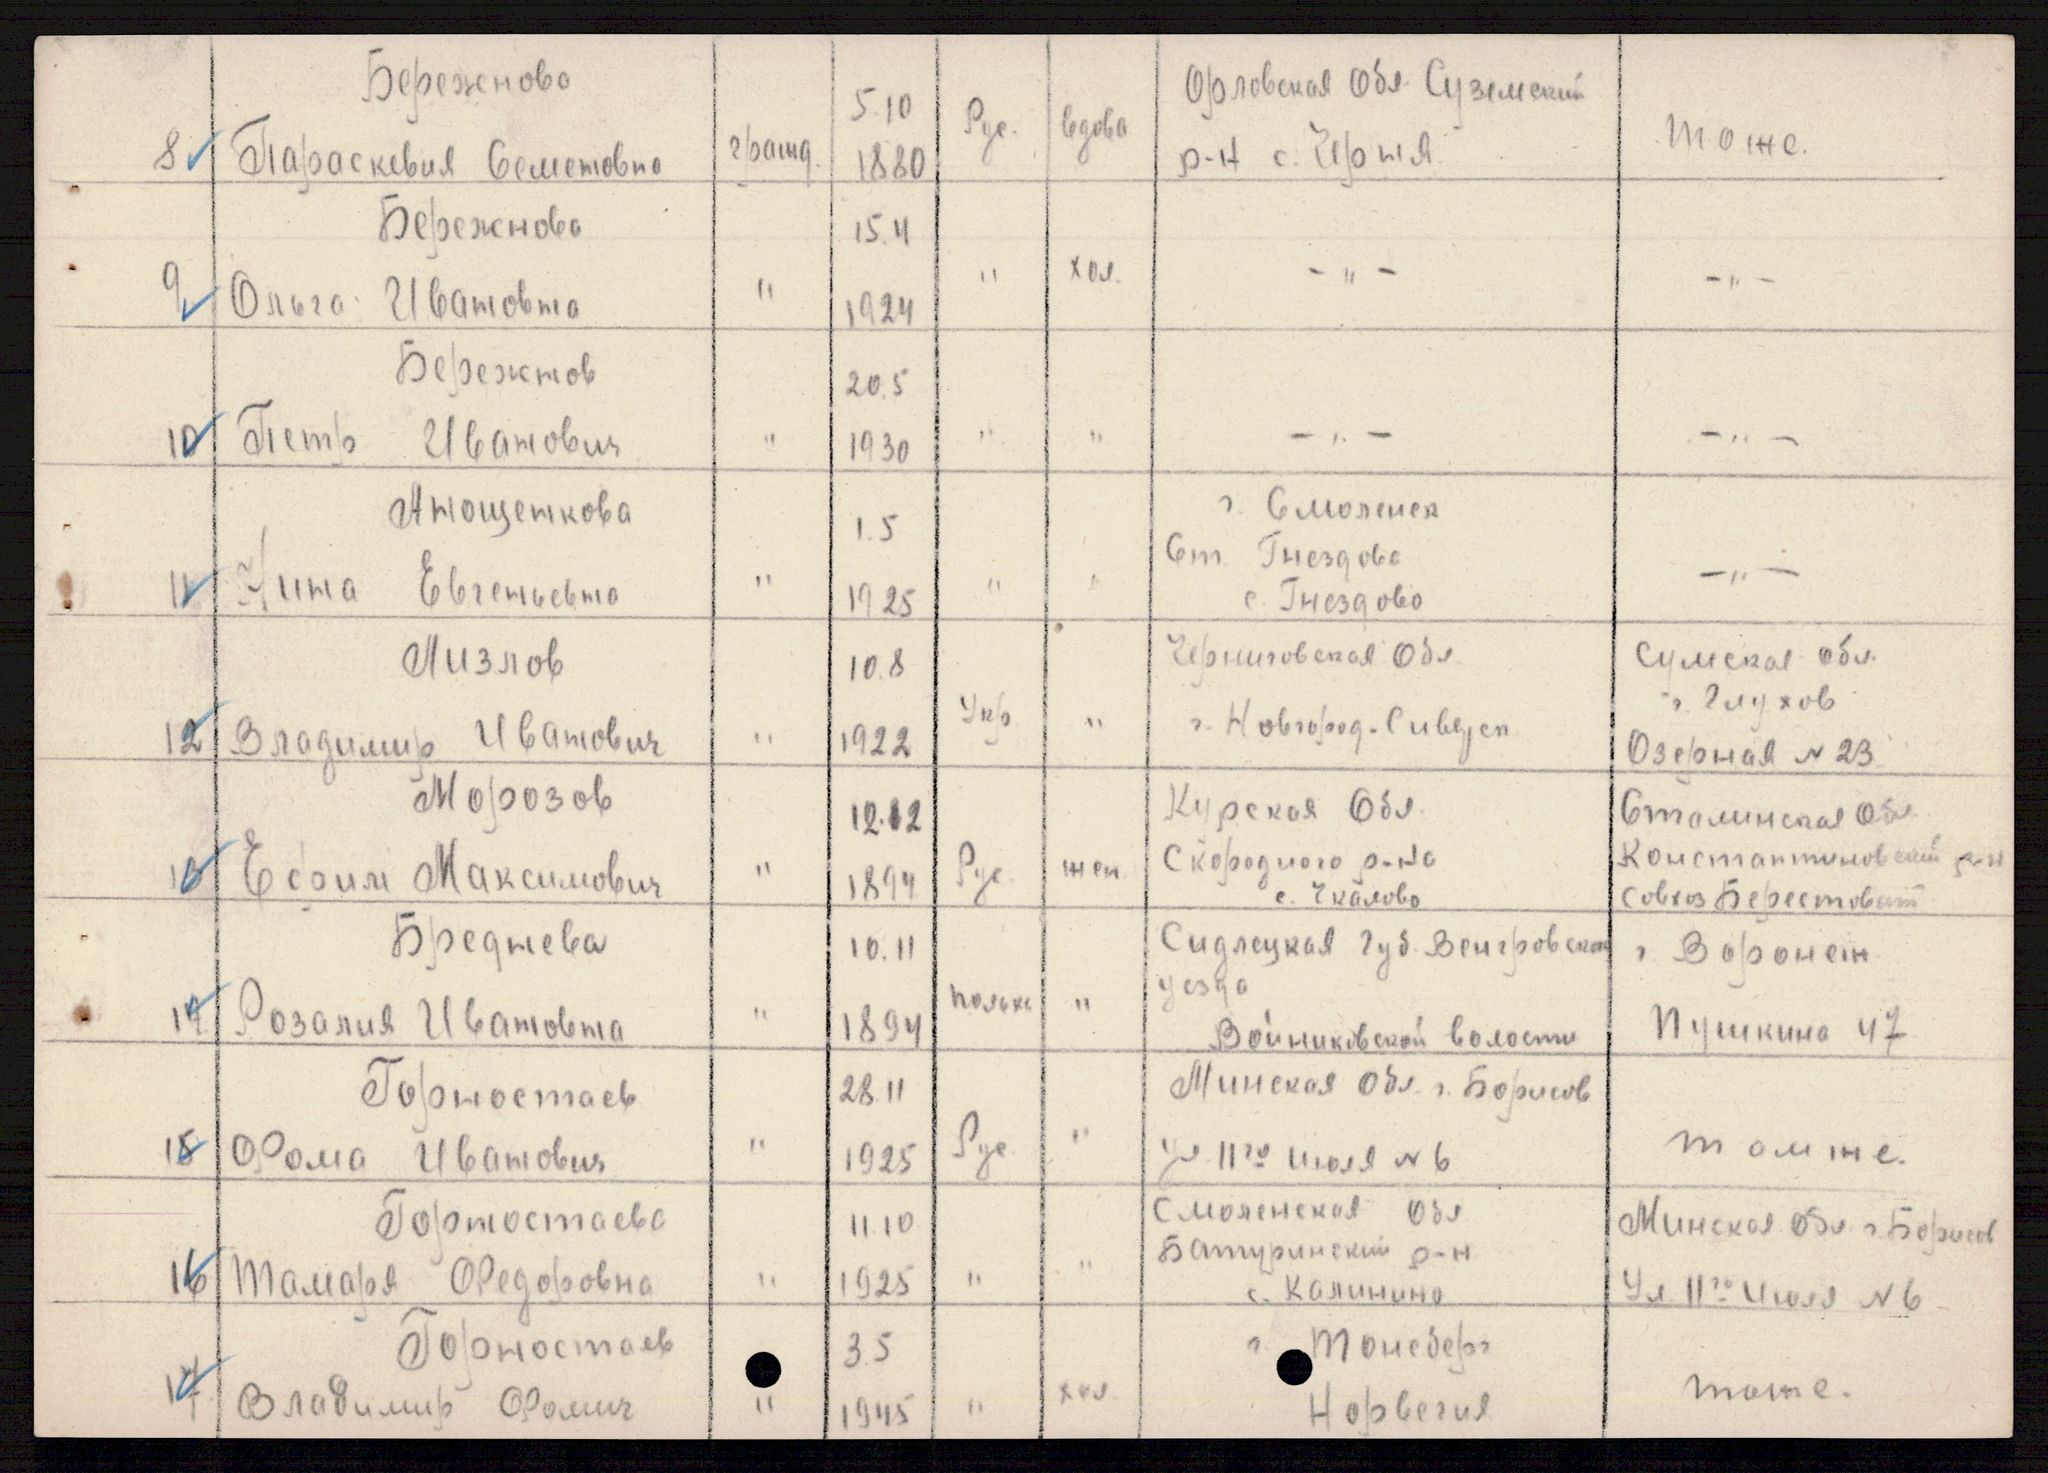 Бережнова 5.10 Орловская Обл Суземский
8 Параскевия Семеновна гражд. 1880 Рус. вдова р-н с. Черня тоже.
Бережнова 15.4
9 Ольга Ивановна " 1924 " хол. - " - - " -
Бережнов 20.5
10 Петр Иванович " 1930 " " - " - - " -
Анощенкова 1.5 г. Смоленск
Ст. Гнездово
11 Нина Евгеньевна " 1925 " " с. Гнездово - " -
Лизлов 10.8 Черниговская Обл. Сумская обл.
г. Глухов
12 Владимир Иванович " 1922 Укр " г. Новгород-Сиверск Озерная N 23
Морозов 12.12 Курская Обл. Сталинская Обл.
13 Ефим Максимович " 1894 Рус. жен. Скородного р-на Константиновский р-н
с. Чкалово совхоз Берестовый
Бреднева 10.11 Сидлецкая губ. Венгровская г. Воронеж
уезда
14 Розалия Ивановна " 1894 полька " Войниковской волости Пушкина 47
Горностаев 28.11 Минская Обл. г. Борисов
15 Фома Иванович " 1925 Рус. " ул 11го Июля N 6 томже.
Горностаева 11.10 Смоленская Обл Минская Обл г. Борисов
Батуринский р-н
16 Тамаря Федоровна " 1925 " " с. Калинино Ул. 11го Июля N 6
Горностаев 3.5 г. Тонсберг
17 Владимир Фомич " 1945 " хол. Норвегия тоже.